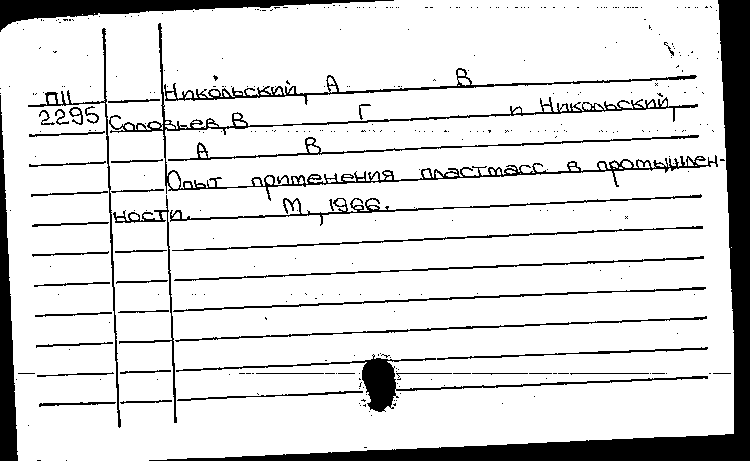 П11 Никольский, А В
2295 Соловьев, В Г и Никольский,
А В
Опыт применения пластмасс в промышлен-
ности. М., 1966.